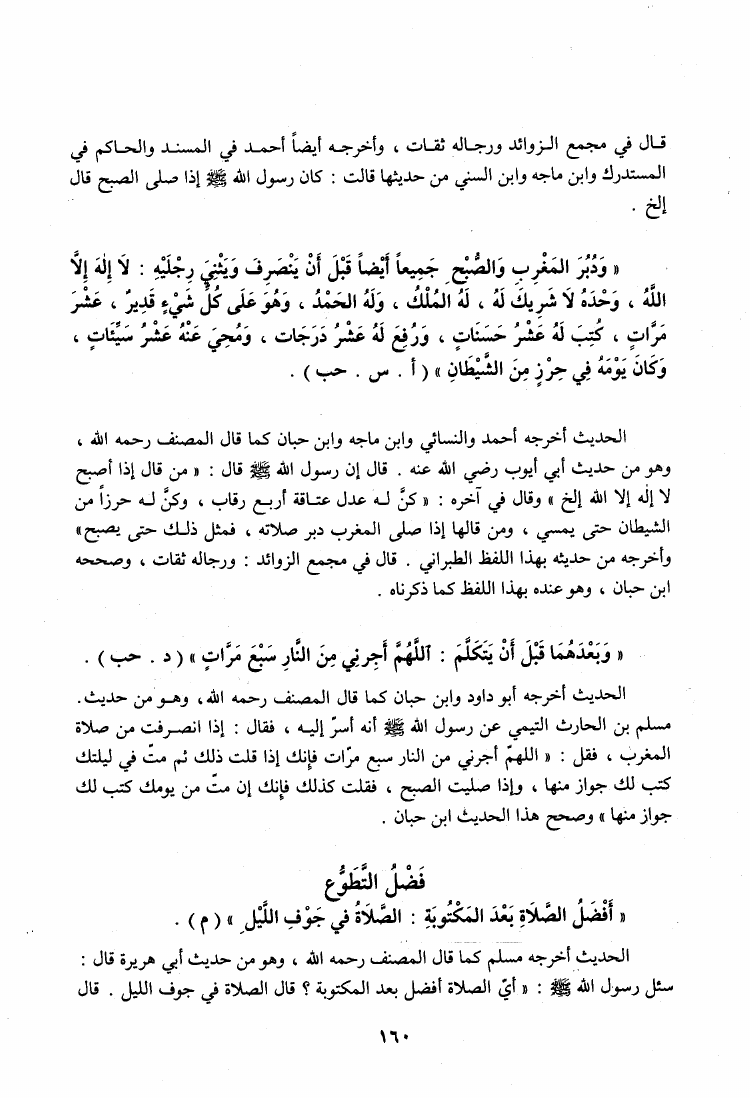 قال في مجمع الزوائد ورجاله ثقات ، وأخرجه أيضاً أحمد في المسند والحاكم في
المستدرك وابن ماجه وابن السني من حديثها قالت : كان رسول الله ﷺ إذا صلى الصبح قال
إلخ .
« وَدُبُرَ المَغْرِبِ وَالصُّبْحِ جَمِيعاً أَيْضاً قَبْلَ أَنْ يَنْصَرِفَ وَيَثْنِيَ رِجْلَيْهِ : لَا إِلهَ إِلَّا
اللَّهُ ، وَحْدَهُ لَا شَرِيكَ لَهُ ، لَهُ المُلْكُ ، وَلَهُ الحَمْدُ ، وَهُوَ عَلَى كُلِّ شَيْءٍ قَدِيرٌ ، عَشْرَ
مَرَّاتٍ ، كُتِبَ لَهُ عَشْرُ حَسَنَاتٍ ، وَرُفِعَ لَهُ عَشْرُ دَرَجَات ، وَمُحِيَ عَنْهُ عَشْرُ سَيِّئَاتٍ ،
وَكَانَ يَوْمَهُ فِي حِرْزٍ مِنَ الشَّيْطَانِ » ( أ . س . حب ) .
الحديث أخرجه أحمد والنسائي وابن ماجه وابن حبان كما قال المصنف رحمه الله ،
وهو من حديث أبي أيوب رضي الله عنه . قال إن رسول الله ﷺ قال : « من قال إذا أصبح
لا إله إلا الله إلخ » وقال في آخره : « كنَّ له عدل عتاقة أربع رقاب ، وكنَّ له حرزاً من
الشيطان حتى يمسي ، ومن قالها إذا صلى المغرب دبر صلاته ، فمثل ذلك حتى يصبح»
وأخرجه من حديثه بهذا اللفظ الطبراني . قال في مجمع الزوائد : ورجاله ثقات ، وصححه
ابن حبان ، وهو عنده بهذا اللفظ كما ذكرناه .
« وَبَعْدَهُمَا قَبْلَ أَنْ يَتَكَلَّمَ : اَللَّهُمَّ أَجِرنِي مِنَ النَّارِ سَبْعَ مَرَّاتٍ » ( د . حب ) .
الحديث أخرجه أبو داود وابن حبان كما قال المصنف رحمه الله، وهو من حديث.
مسلم بن الحارث التيمي عن رسول الله ﷺ أنه أسرّ إليه ، فقال : إذا انصرفت من صلاة
المغرب ، فقل : « اللهمّ أجرني من النار سبع مرّات فإنك إذا قلت ذلك ثم متّ في ليلتك
كتب لك جواز منها ، وإذا صليت الصبح ، فقلت كذلك فإنك إن متّ من يومك كتب لك
جواز منها » وصحح هذا الحديث ابن حبان .
فَضْلُ التَّطَوُّعِ
« أَفْضَلُ الصَّلَاةِ بَعْدَ المَكْتُوبَةِ : الصَّلَاةُ في جَوْفِ اللَّيْلِ » ( م ) .
الحديث أخرجه مسلم كما قال المصنف رحمه الله ، وهو من حديث أبي هريرة قال :
سئل رسول الله ﷺ : « أيّ الصلاة أفضل بعد المكتوبة ؟ قال الصلاة في جوف الليل . قال
١٦٠